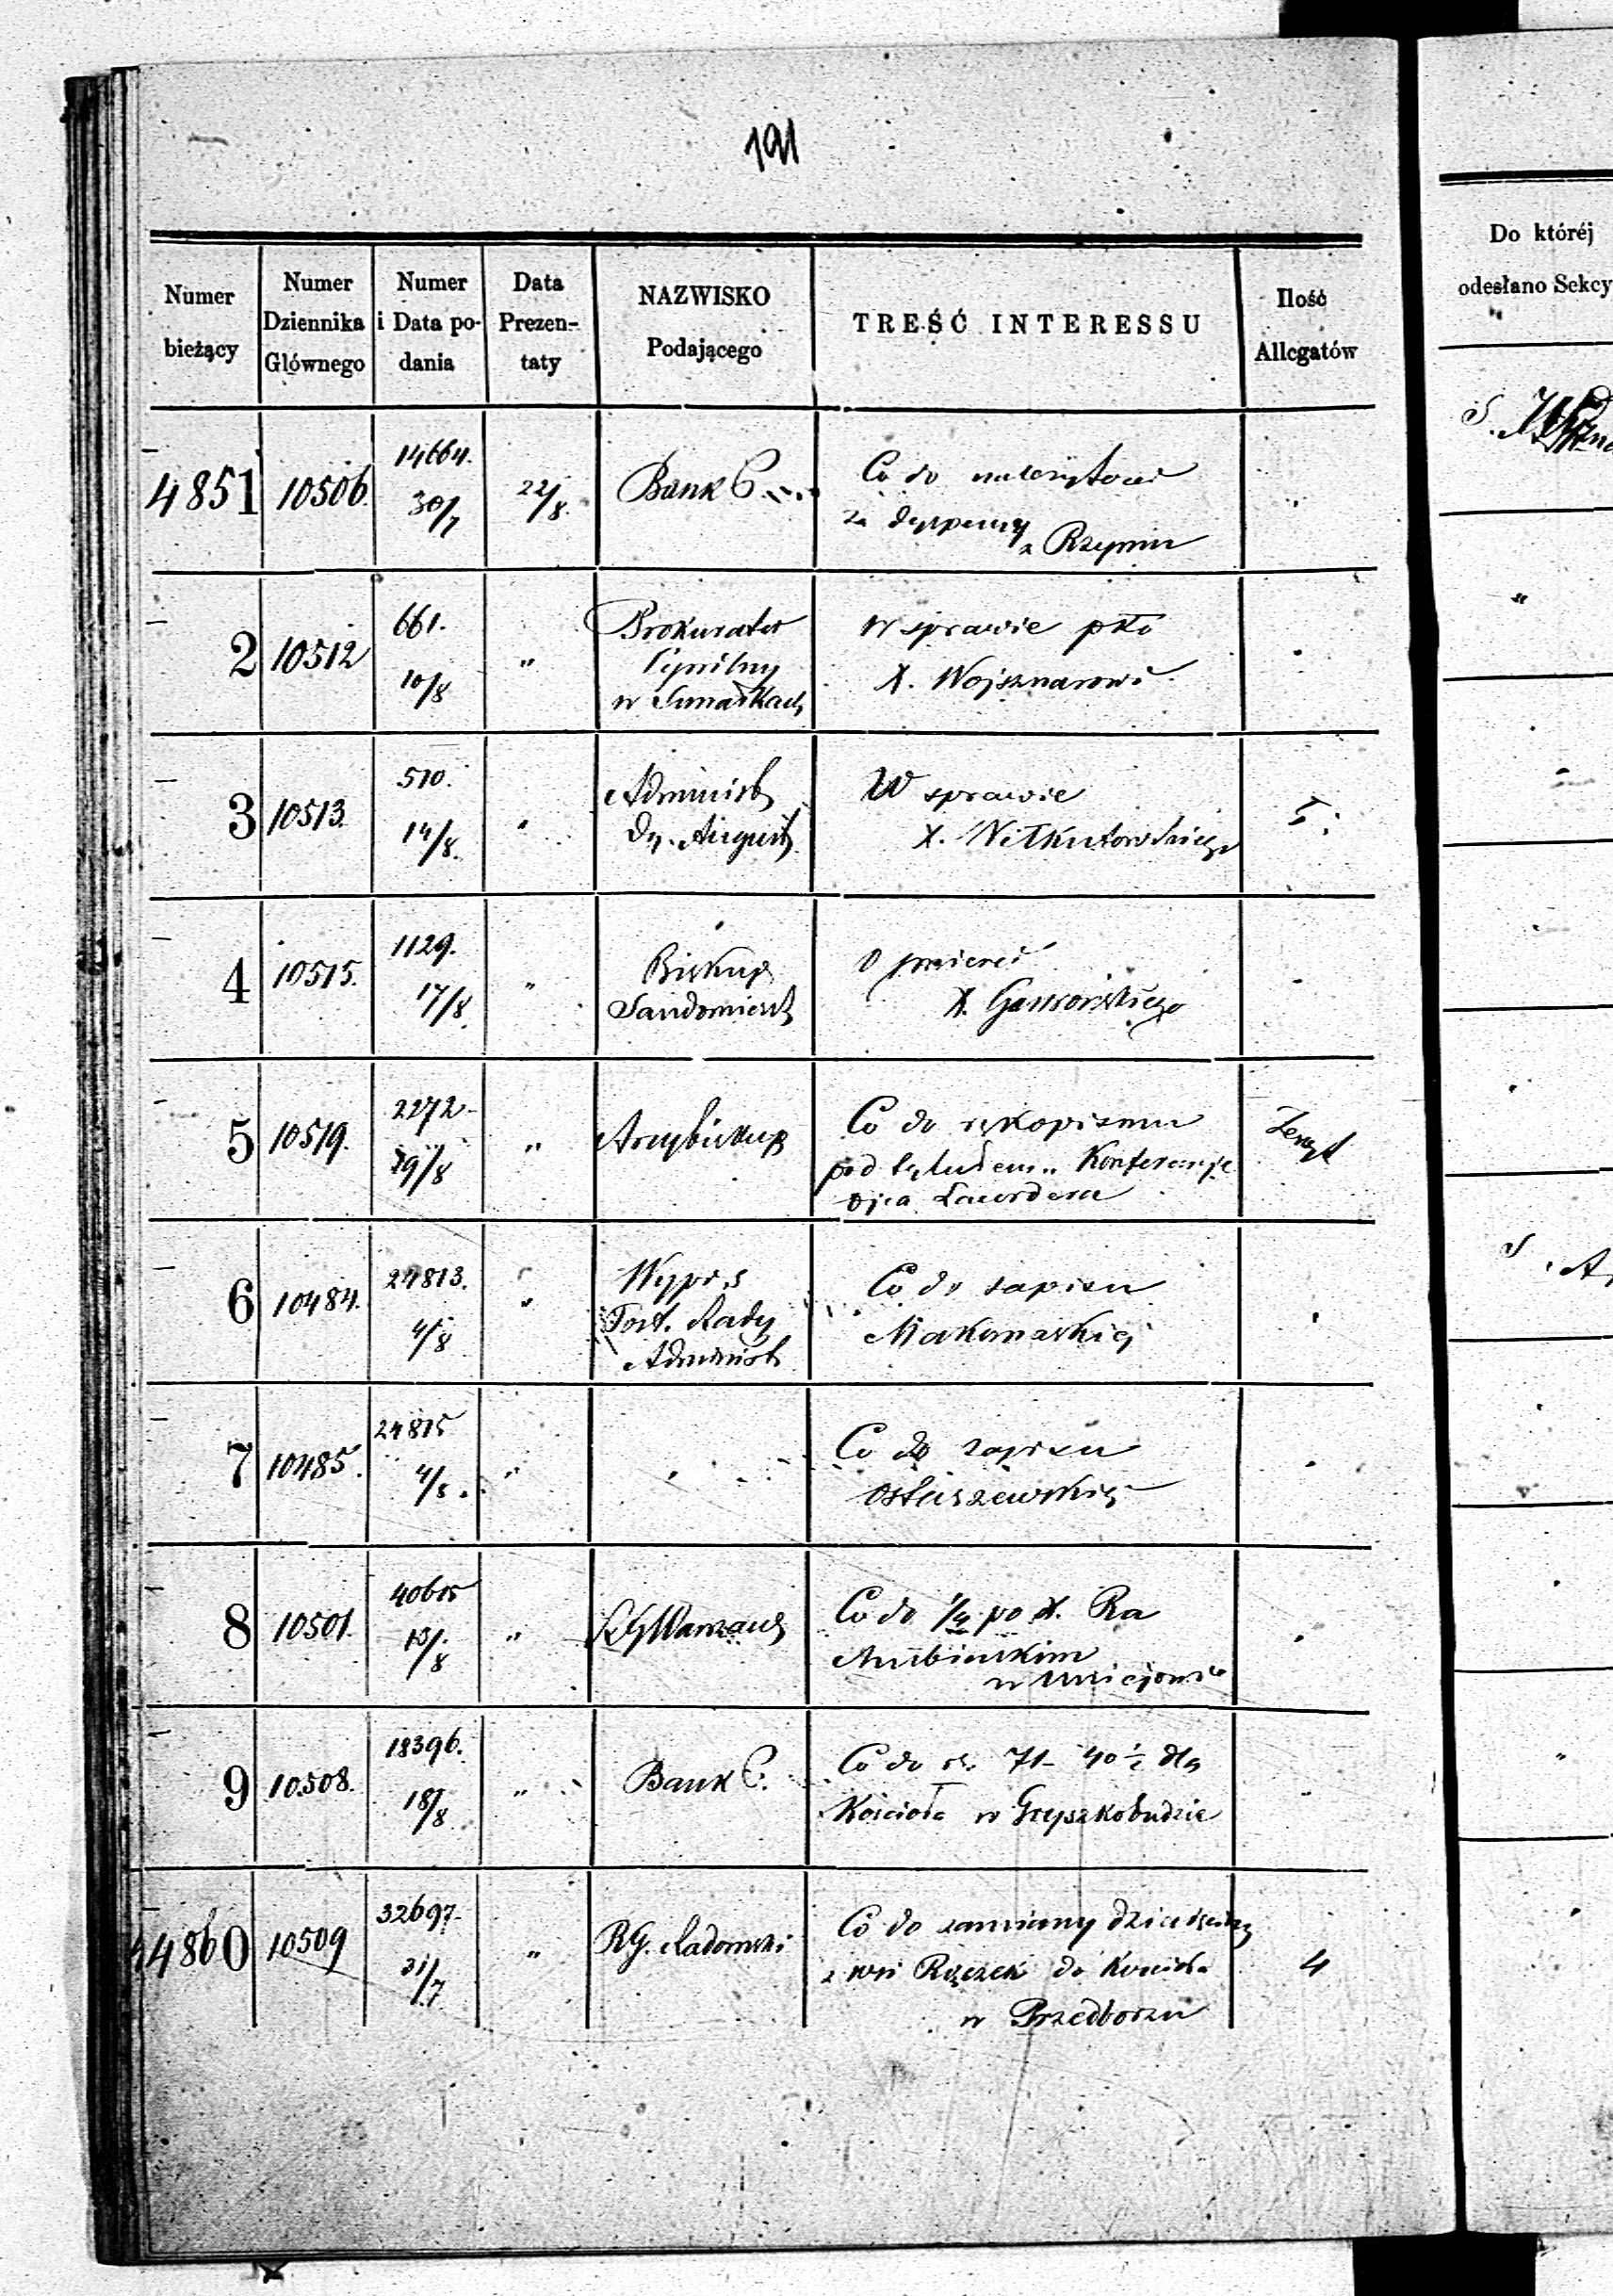 191
Numer bieżący
Numer Dziennika Głównego
Numer i Data podania
Data Prezentaty
NAZWISKO Podającego
TREŚĆ INTERESSU
Ilość Allegatów
Do któréj
odesłano Sekcy
4851 10506. 14664. 30/7 22/8 Bank P. Co do
za dyspensy
z Rzymu
2 10512 661. 10/8 " Prokurator W sprawie pko
Cywilny X. Wojsznarowi
w
3 10513. 510. 14/8. " Administ W sprawie
Dy. August X. Witkutowskiego 5.
4 10515. 1129. 17/8. " Biskup O śmierci
Sandomiersk X. Gąsiorowskiego
5 10519. 2272 19/8 " Arcybiskup Co do rękopismu Zeszyt
pod tytułem „Konferencje
ojca
6 10484. 24813. 4/8 " Wypis Co do zapisu
Post. Rady Makomaskiej
Administ
7 10485. 24815 4/8. " " Co do zapisu
Ostaszewskiej
8 10501. 40615 13/8 " Co do 1/4 po X. Ra
w Uniejowie
9 10508. 18396. 18/8 " Bank P. Co do rs. 71 - 40 1/2 dla
Kościoła w Gryszkobudzie
4860 10509 32697. 31/7 " RG. Radomski Co do zamiany dziesięciny 4
z wsi Rączek do Kościoła
w Przedborzu